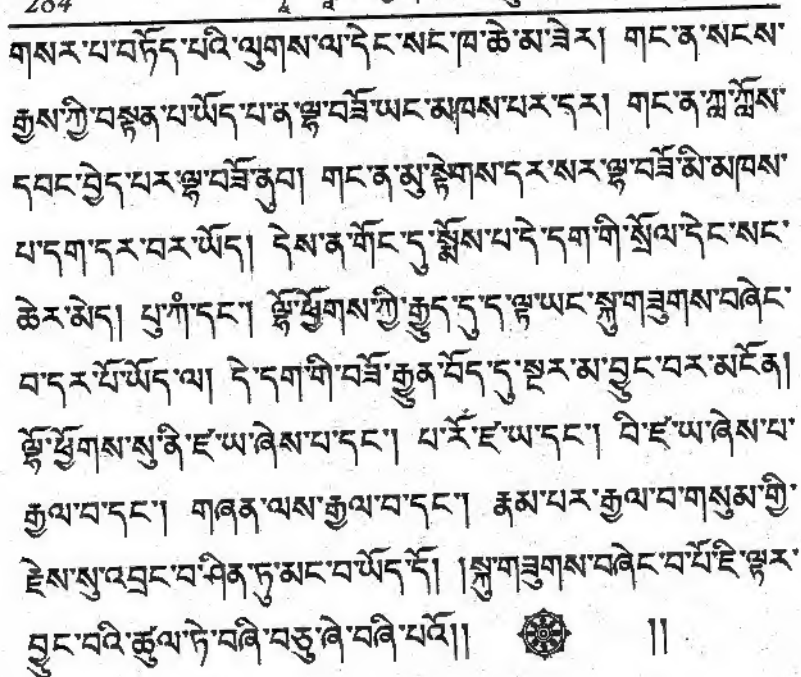 204
གསར་པ་བཏོད་པའི་ལུགས་ལ་དེང་སང་ཁ་ཆེ་མ་ཟེར། གང་ན་སངས་
རྒྱས་ཀྱི་བསྟན་པ་ཡོད་པ་ན་ལྷ་བཟོ་ཡང་མཁས་པར་དར། གང་ན་ཀླ་ཀློས་
དབང་བྱེད་པར་ལྷ་བཟོ་ནུབ། གང་ན་མུ་སྟེགས་དར་སར་ལྷ་བཟོ་མི་མཁས་
པ་དག་དར་བར་ཡོད། དེས་ན་གོང་དུ་སྨོས་པ་དེ་དག་གི་སྲོལ་དེང་སང་
ཆེར་མེད། པུ་ཀཾ་དང་། ལྷོ་ཕྱོགས་ཀྱི་རྒྱུད་དུ་ད་ལྟ་ཡང་སྐུ་གཟུགས་བཞེང་
བ་དར་པོ་ཡོད་ལ། དེ་དག་གི་བཟོ་རྒྱུན་བོད་དུ་སྔར་མ་བྱུང་བར་མངོན།
ལྷོ་ཕྱོགས་སུ་ནི་ཛ་ཡ་ཞེས་པ་དང་། པ་རོཾ་ཛ་ཡ་དང་། བི་ཛ་ཡ་ཞེས་པ་
རྒྱལ་བ་དང་། གཞན་ལས་རྒྱལ་བ་དང་། རྣམ་པར་རྒྱལ་བ་གསུམ་གྱི་
རྗེས་སུ་འབྲང་བ་ཤིན་ཏུ་མང་བ་ཡོད་དོ། །སྐུ་གཟུགས་བཞེང་བ་པོ་ཇི་ལྟར་
བྱུང་བའི་ཚུལ་ཏེ་བཞི་བཅུ་ཞེ་བཞི་པའོ།། །།